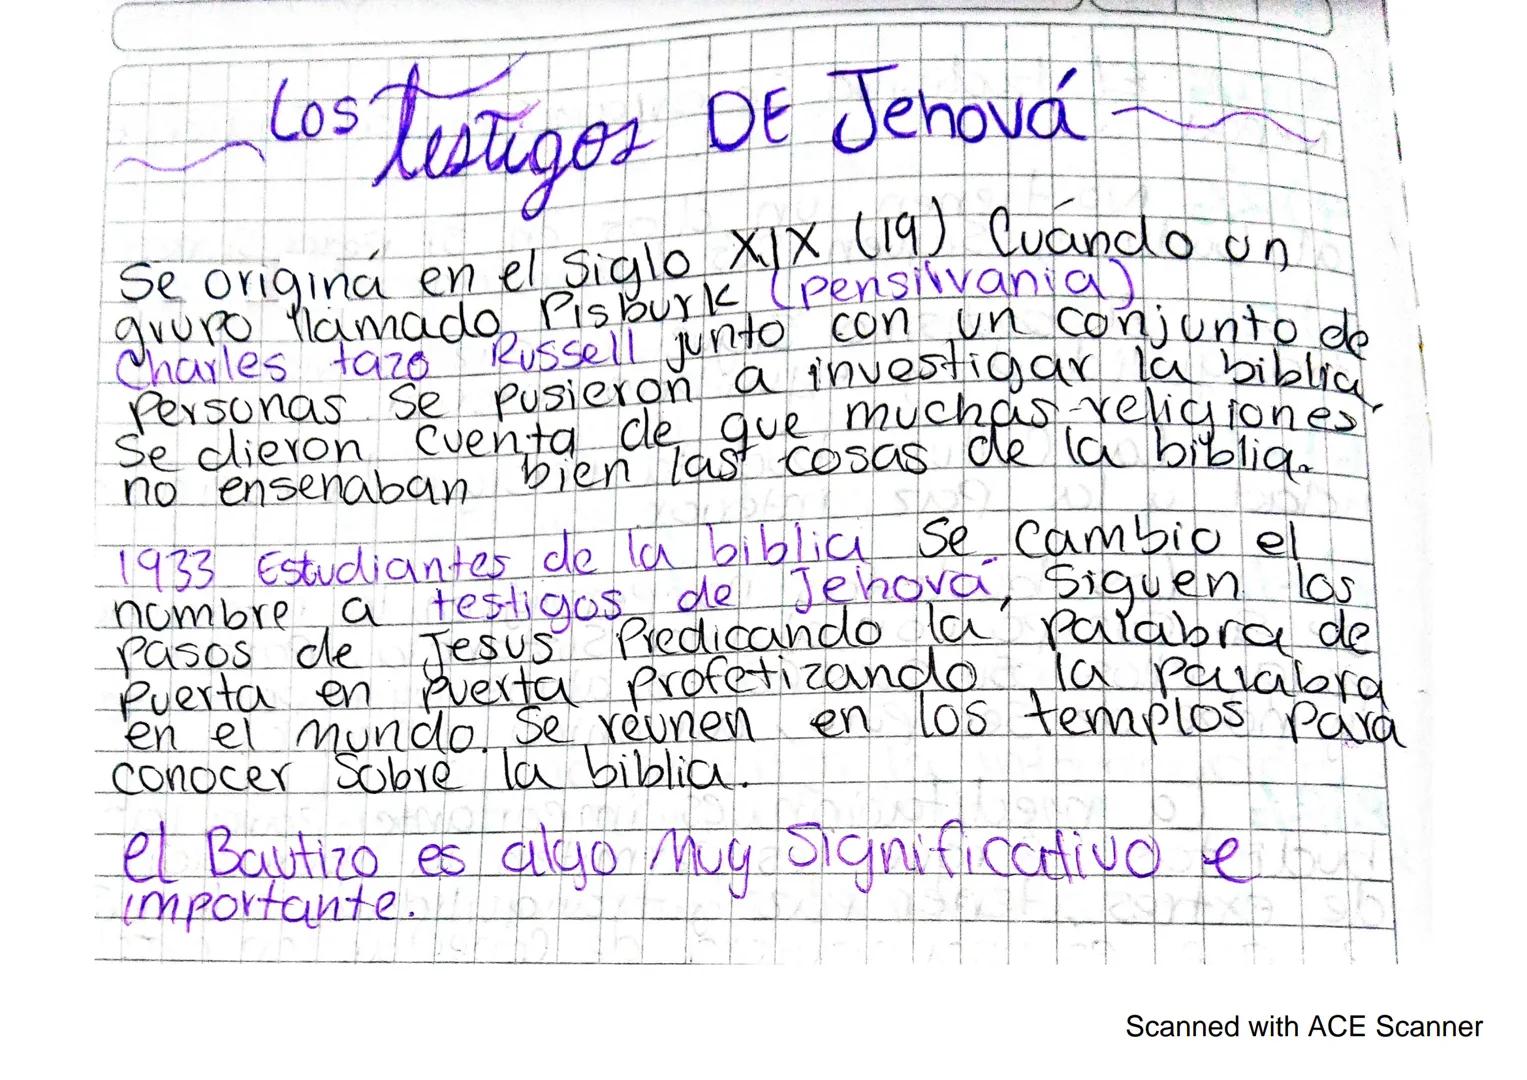 Los Testigos DE Jehová
Se originá en el siglo XIX (19) Cuándo un
grupo llamado Pisburk (pensilvania)
Charles tazo Russell junto con un conjunto de
personas se pusieron a investigar la biblia,
se dieron cuenta de que muchas religiones
no ensenaban bien las cosas de la biblia.
1933 Estudiantes de la biblia se cambio el
nombre a testigos de Jehová, siguen los
pasos de Jesus Predicando la palabra de
puerta en puerta profetizando la palabra
en el mundo. Se reunen en los templos para
conocer sobre la biblia.
el Bautizo es algo muy significativo e
importante.
Scanned with ACE Scanner